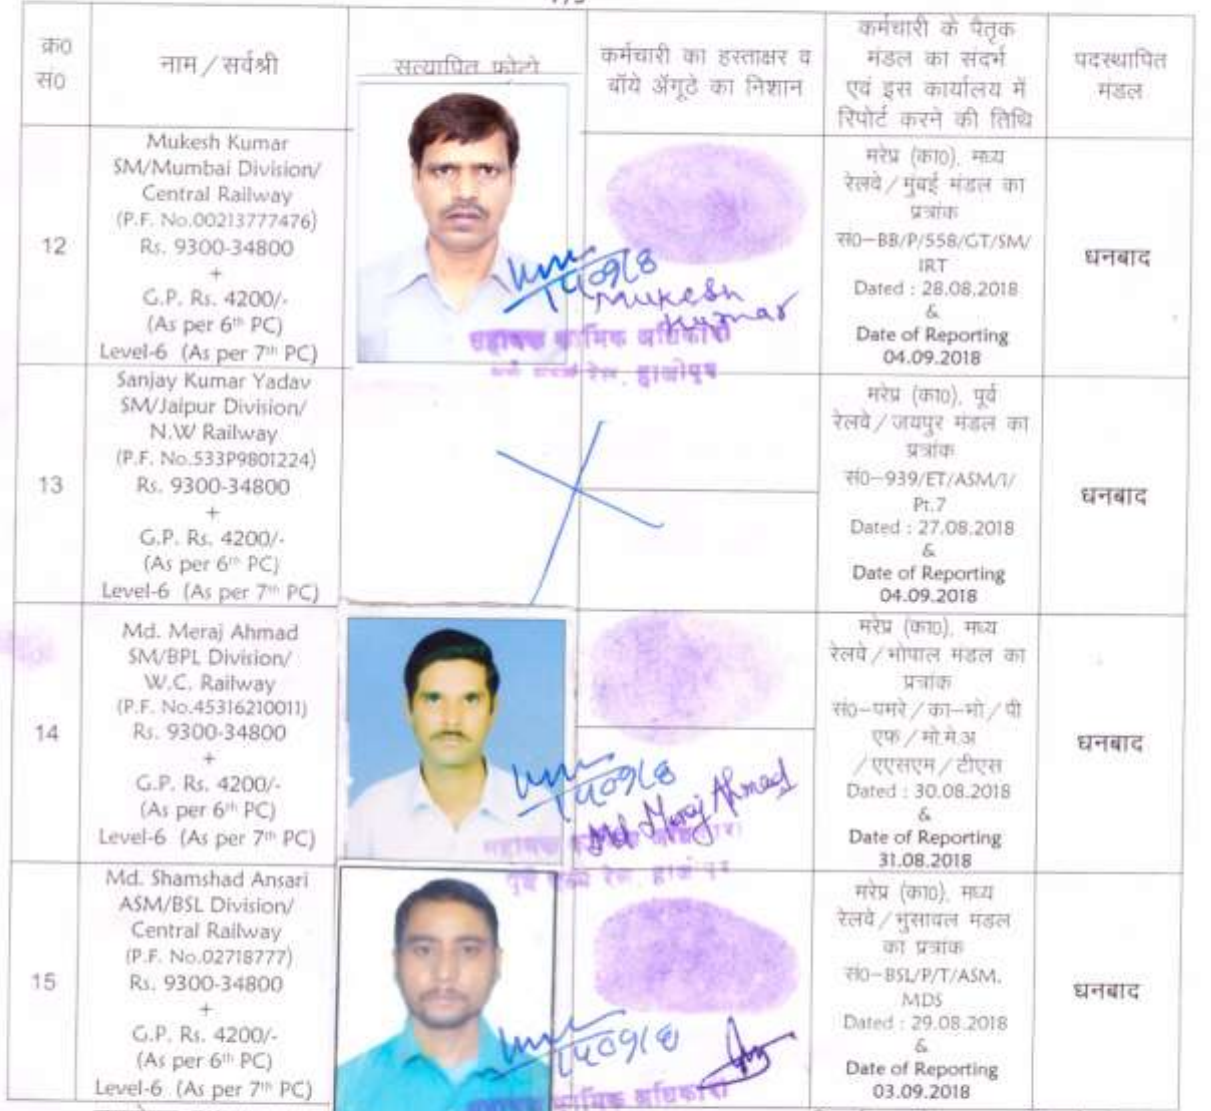 क्र0
सं0
नाम / सर्वश्री
सत्यापित फोटो
कर्मचारी का हस्ताक्षर व
बाँये अँगूठे का निशान
कर्मचारी के पैतृक
मंडल का संदर्भ
एवं इस कार्यालय में
रिपोर्ट करने की तिथि
पदस्थापित
मंडल
12
Mukesh Kumar
SM/Mumbai Division/
Central Railway
(P.F. No.00213777476)
Rs. 9300-34800
+
G.P. Rs. 4200/-
(As per 6th PC)
Level-6 (As per 7th PC)
Mukesh
Kumar
सहायक कार्मिक अधिकारी
पूर्व मध्य रेल, हाजीपुर
मरेप्र (का0), मध्य
रेलवे / मुंबई मंडल का
पत्रांक
सं0-BB/P/558/GT/SM/
IRT
Dated : 28.08.2018
&
Date of Reporting
04.09.2018
धनबाद
13
Sanjay Kumar Yadav
SM/Jaipur Division/
N.W Railway
(P.F. No.533P9801224)
Rs. 9300-34800
+
G.P. Rs. 4200/-
(As per 6th PC)
Level-6 (As per 7th PC)
मरेप्र (का0), पूर्व
रेलवे / जयपुर मंडल का
पत्रांक
सं0-939/ET/ASM/1/
Pt.7
Dated : 27.08.2018
&
Date of Reporting
04.09.2018
धनबाद
14
Md. Meraj Ahmad
SM/BPL Division/
W.C. Railway
(P.F. No.45316210011)
Rs. 9300-34800
+
G.P. Rs. 4200/-
(As per 6th PC)
Level-6 (As per 7th PC)
Md Meraj Ahmed
पूर्व मध्य रेल, हाजीपुर
मरेप्र (का0), मध्य
रेलवे / भोपाल मंडल का
पत्रांक
सं0-पमरे / का-भो / पी
एफ / मो.मे.अ
/ एएसएम / टीएस
Dated : 30.08.2018
&
Date of Reporting
31.08.2018
धनबाद
15
Md. Shamshad Ansari
ASM/BSL Division/
Central Railway
(P.F. No.02718777)
Rs. 9300-34800
+
G.P. Rs. 4200/-
(As per 6th PC)
Level-6 (As per 7th PC)
सहायक कार्मिक अधिकारी
मरेप्र (का0), मध्य
रेलवे / भुसावल मंडल
का पत्रांक
सं0-BSL/P/T/ASM.
MDS
Dated : 29.08.2018
&
Date of Reporting
03.09.2018
धनबाद